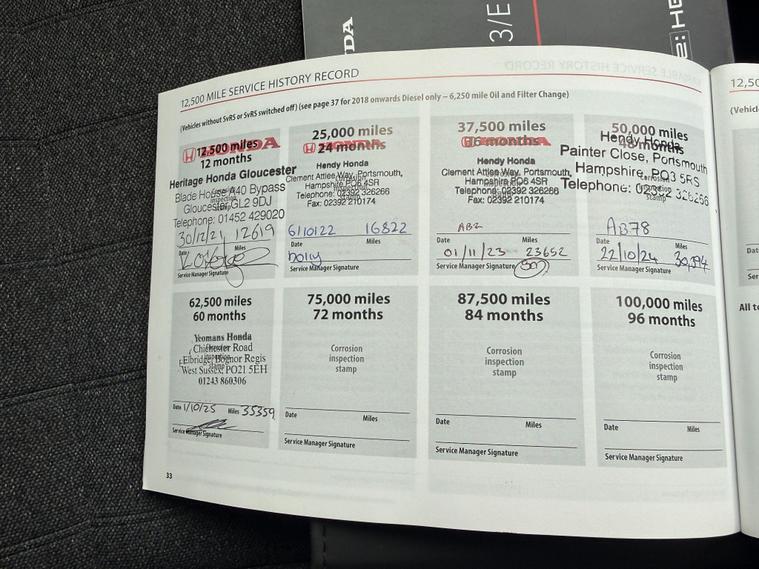 12,500 MILE SERVICE HISTORY RECORD
(Vehicles without SvRS or SvRS switched off) (see page 37 for 2018 onwards Diesel only – 6,250 mile Oil and Filter Change)
12,500 miles
12 months
HONDA
Heritage Honda Gloucester
Blade House A40 Bypass
Gloucester GL2 9DJ
Telephone: 01452 429020
30/12/21 12619
Date Miles
Service Manager Signature
25,000 miles
24 months
HONDA
Hendy Honda
Clement Attlee Way, Portsmouth
Hampshire PO6 4SR
Telephone: 02392 326266
Fax: 02392 210174
6/10/22 16822
Date Miles
Service Manager Signature
37,500 miles
36 months
HONDA
Hendy Honda
Clement Attlee Way, Portsmouth
Hampshire PO6 4SR
Telephone: 02392 326266
Fax: 02392 210174
Date Miles
01/11/23 23652
Service Manager Signature
50,000 miles
48 months
Hendy Honda
Painter Close, Portsmouth
Hampshire, PO3 5RS
Telephone: 02392 326266
AB78
Date Miles
22/10/24
Service Manager Signature
62,500 miles
60 months
Yeomans Honda
Chichester Road
Elbridge, Bognor Regis
West Sussex, PO21 5EH
01243 860306
Date 1/10/25 Miles 35359
Service Manager Signature
75,000 miles
72 months
Corrosion
inspection
stamp
Date Miles
Service Manager Signature
87,500 miles
84 months
Corrosion
inspection
stamp
Date Miles
Service Manager Signature
100,000 miles
96 months
Corrosion
inspection
stamp
Date Miles
Service Manager Signature
33
12,50
(Vehicl
All to